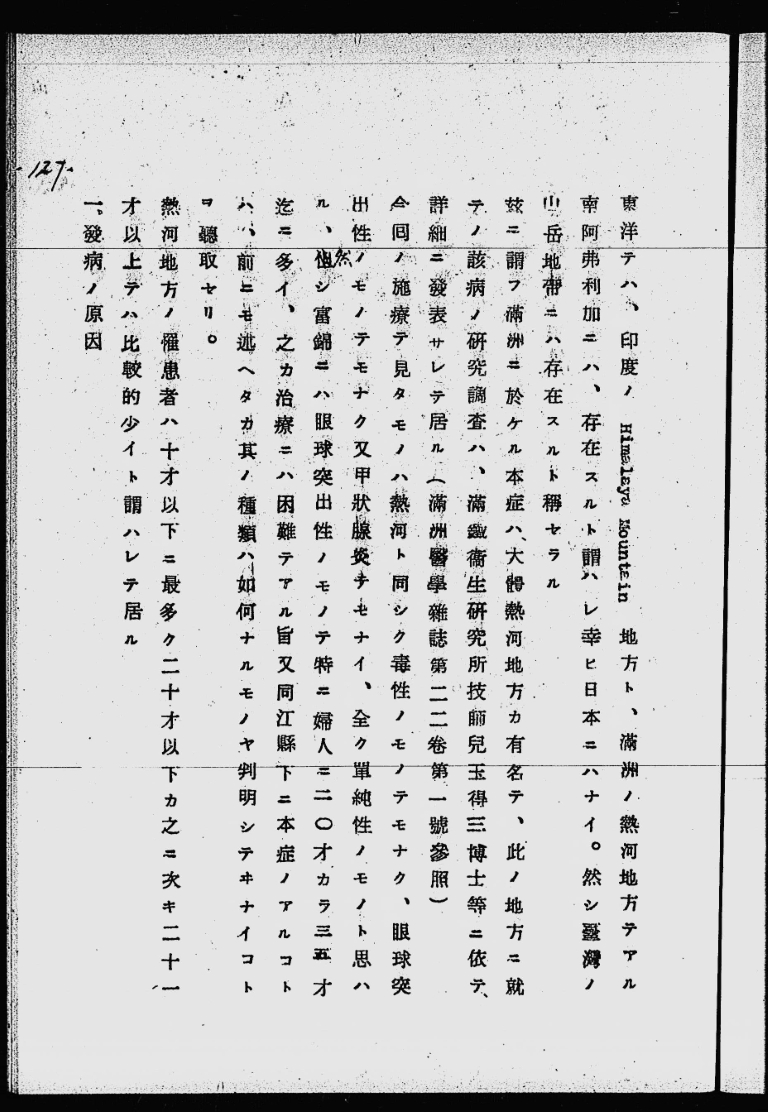 東洋テハ、印度ノ Himalaya Mountain 地方ト、滿洲ノ熱河地方テアル
南阿弗利加ニハ、存在スルト謂ハレ幸ヒ日本ニハナイ。然シ臺灣ノ
山岳地帶ニハ存在スルト稱セラル
玆ニ謂フ滿洲ニ於ケル本症ハ、大體熱河地方カ有名テ、此ノ地方ニ就
テノ該病ノ研究調査ハ、滿鐵衞生研究所技師兒玉得三博士等ニ依テ、
詳細ニ發表サレテ居ル(滿洲醫學雜誌第二二卷第一號參照)
今回ノ施療テ見タモノハ熱河ト同シク毒性ノモノテモナク、眼球突
出性ノモノテモナク又甲狀腺炎テモナイ、全ク單純性ノモノト思ハ
ル、然シ富錦ニハ眼球突出性ノモノテ特ニ婦人ニ二〇才カラ三五才
迄ニ多イ、之カ治療ニハ困難テアル旨又同江縣下ニ本症ノアルコト
ハ、前ニモ述ヘタカ其ノ種類ハ如何ナルモノヤ判明シテヰナイコト
ヲ聽取セリ。
熱河地方ノ罹患者ハ十才以下ニ最多ク二十才以下カ之ニ次キ二十一
才以上テハ比較的少イト謂ハレテ居ル
一、發病ノ原因
-127-